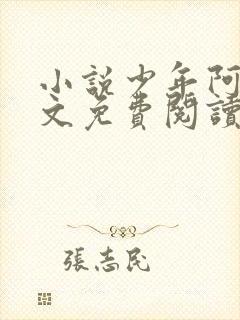 小說少年阿
文免費閱讀
張志民